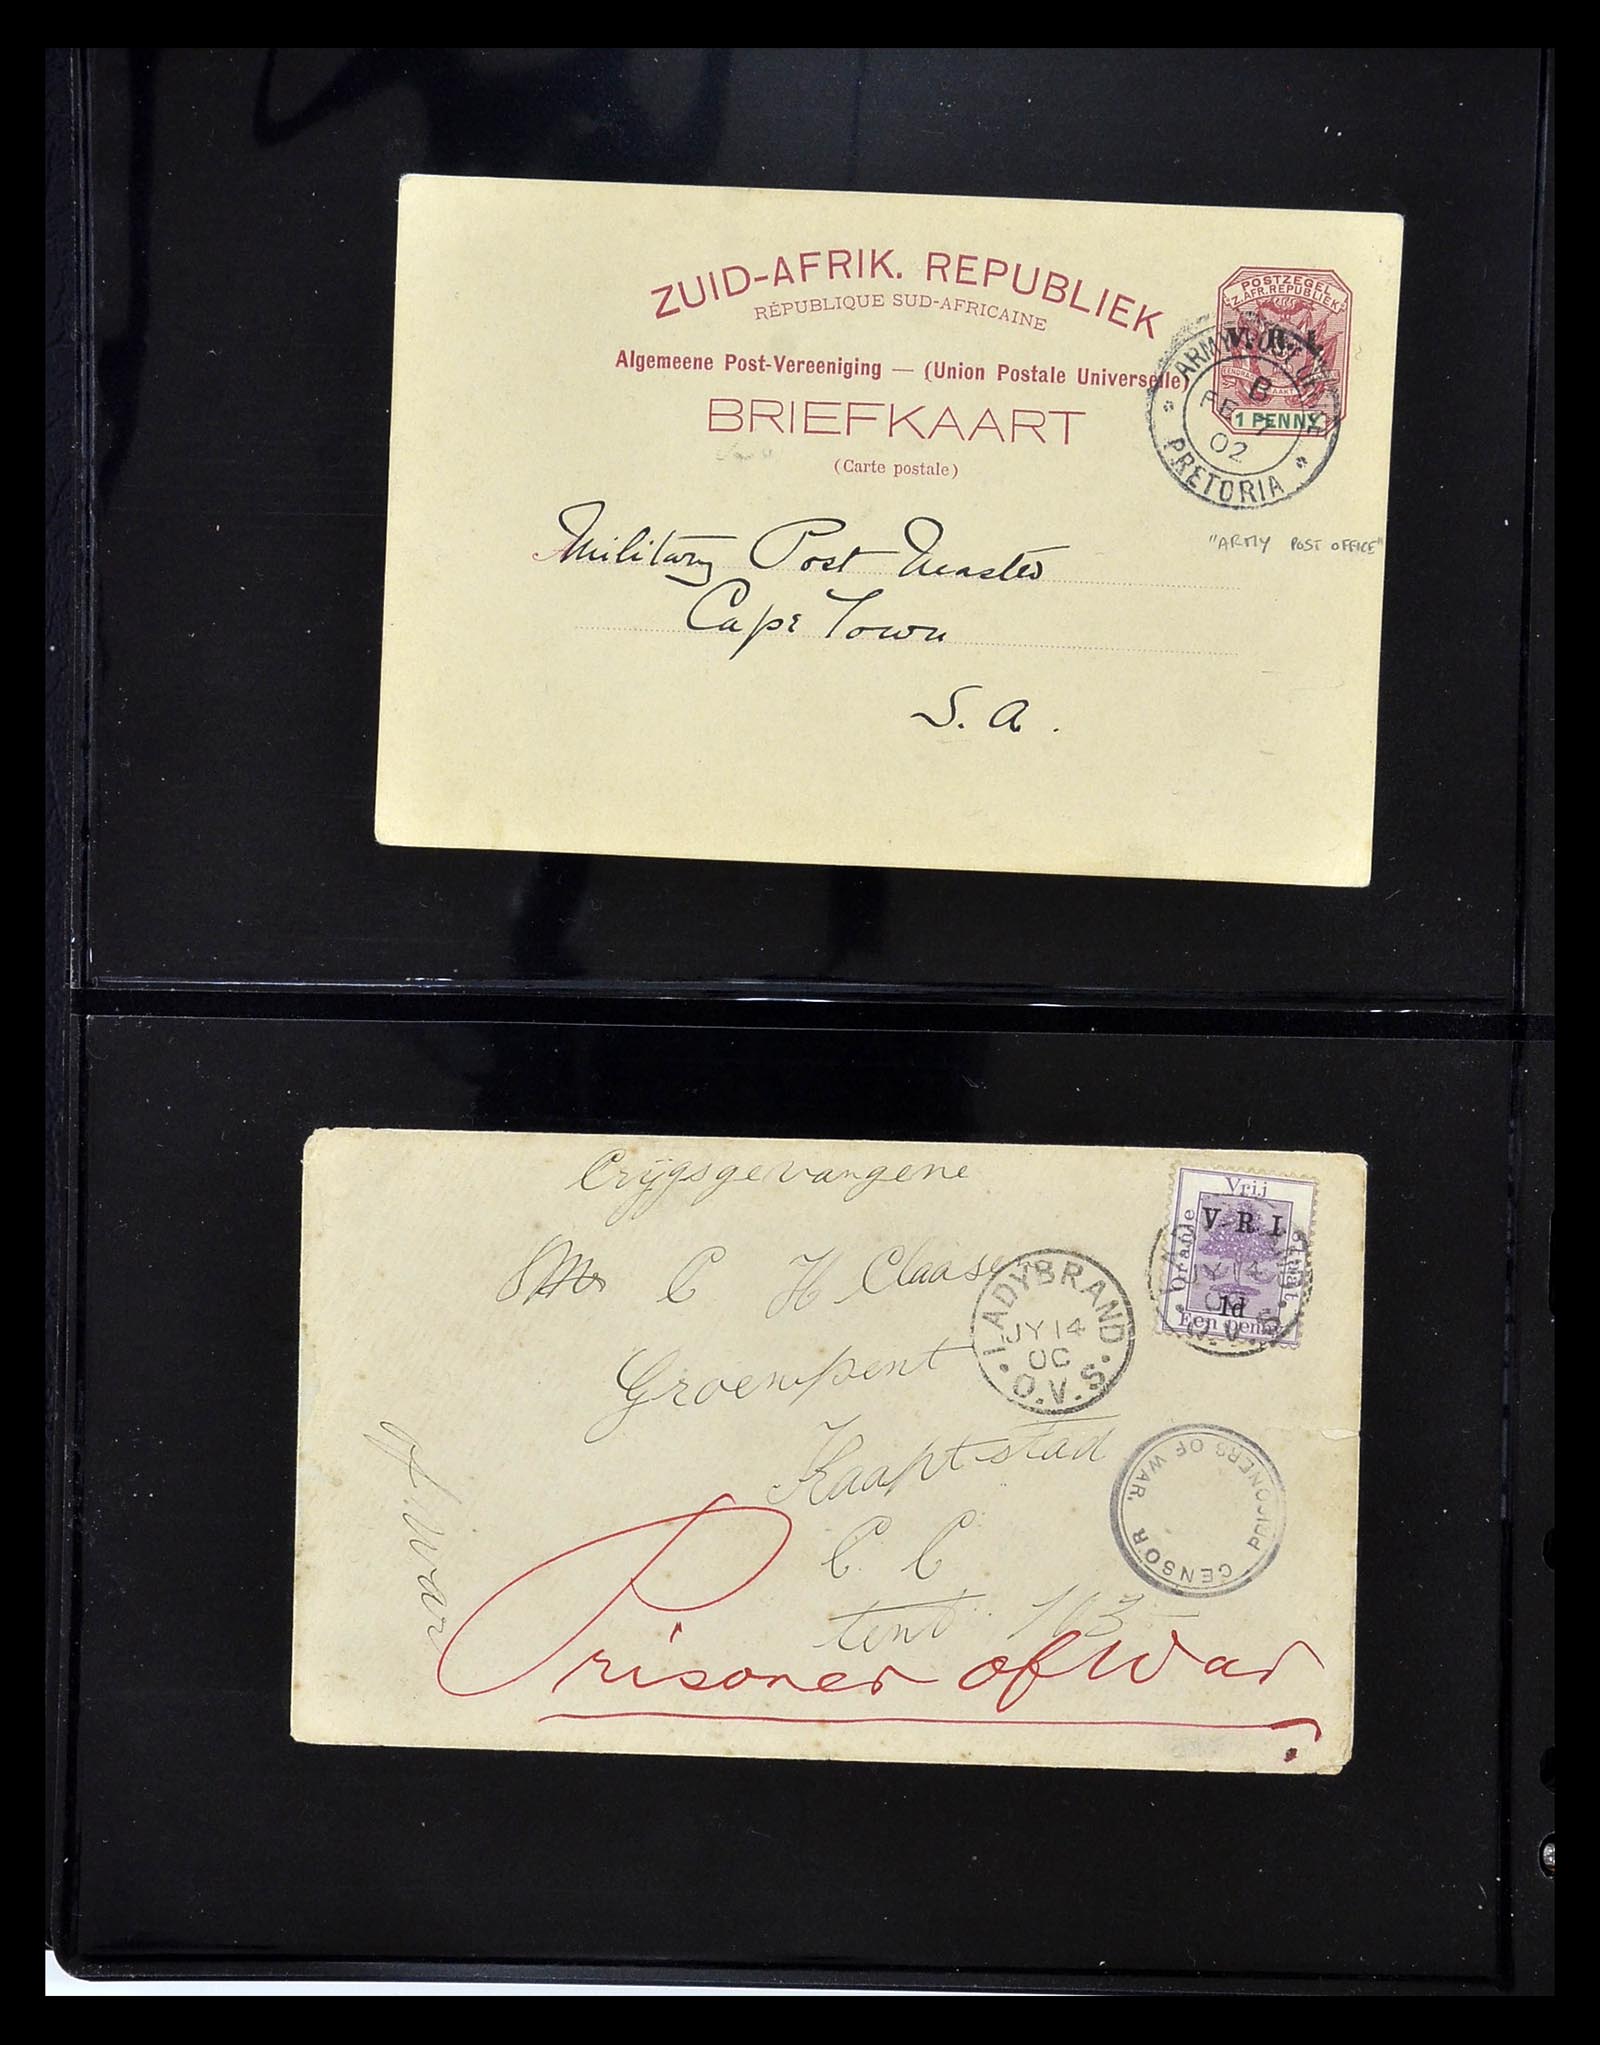 ZUID-AFRIK. REPUBLIEK
RÉPUBLIQUE SUD-AFRICAINE
Algemeene Post-Vereeniging — (Union Postale Universelle)
BRIEFKAART
(Carte postale)
POSTZEGEL
Z. AFR. REPUBLIEK
V. R. I.
1 PENNY
ARMY POST OFFICE
B
FE 7
02
PRETORIA
"ARMY POST OFFICE"
Military Post Master
Cape Town
S. A.
Crÿgsgevangene
Mr C H Claase
Groenpunt
Kaaptstad
C. C
tent 103
of War
Prisoner of War
LADYBRAND
JY 14
00
O.V.S.
Vrij
Oranje
Staat.
V. R. I.
1d
Een penny
JY 14
CENSOR PRISONERS OF WAR.